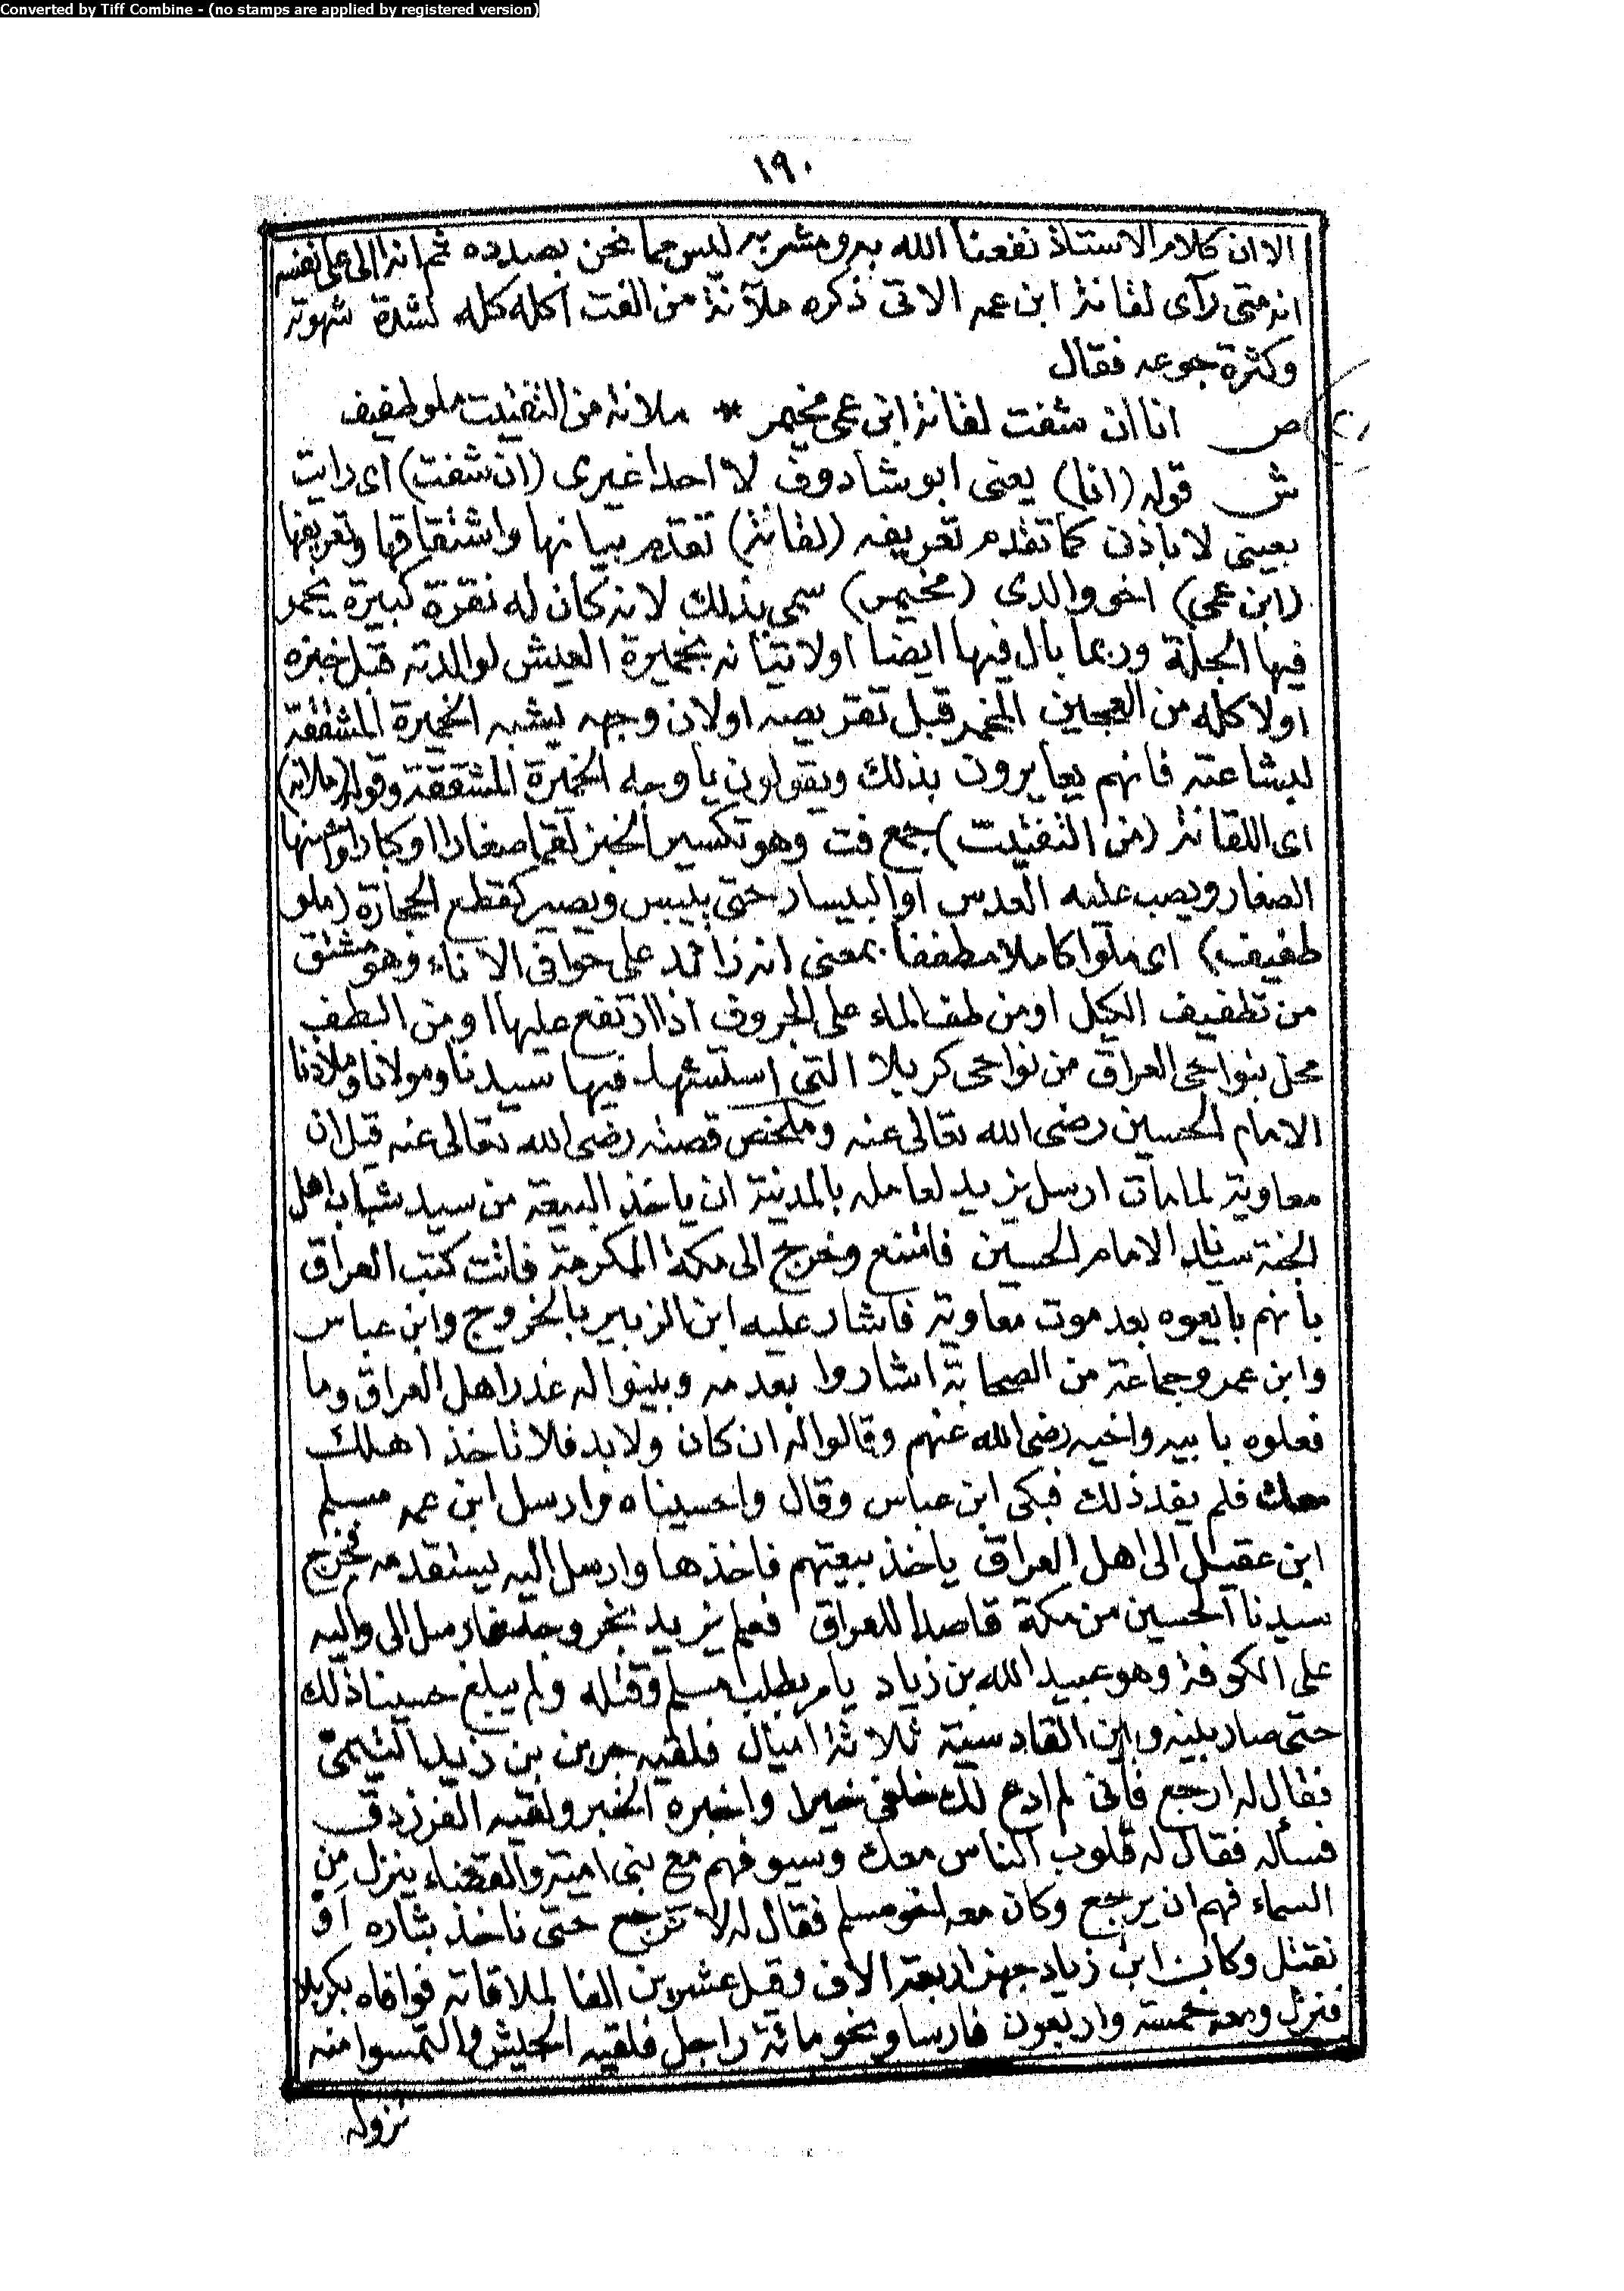 Converted by Tiff Combine - (no stamps are applied by registered version)
١٩٠
الا ان كلام الاستاذ نفعنا الله به ومشربه ليس مما نحن بصدده ثم انه الى على نفسه
انه متى رآى لقانة ابن عمه الاتى ذكره ملآنة من الفت اكله كله لشدة شهوته
وكثرة جوعه فقال
ص انا ان شفت لقانة ابن عمى مخيمر * ملانة من التفتيت ملو طفيف
ش قوله (انا) يعنى ابو شادوف لا احدا غيرى (ان شفت) اى رايت
بعينى لا باذنى كما تقدم تعريفه (لقانة) تقدم بيانها واشتقاقها وتعريفها
(ابن عمى) اخو والدى (مخيمر) سمى بذلك لانه كان له نقرة كبيرة يخمر
فيها الجلة وربما بال فيها ايضا او لاتيانه بخميرة العيش لوالدته قبل خبزه
او لاكله من العجين المخمر قبل تقريصه او لان وجهه يشبه الخميرة المشققة
لبشاعته فانهم يعايرون بذلك ويقولون يا وجه الخميرة المشققة وقوله (ملانه)
اى اللقانة (من التفتيت) جمع فت وهو تكسير الخبز لقما صغارا او كبارا واحسنها
الصغار ويصب عليه العدس او البيسار حتى ييبس ويصير كقطع الحجارة (ملو
طفيف) اى ملوا كاملا مطففا بمعنى انه زائد على حوافى الاناء وهو مشتق
من تطفيف الكيل او من طف الماء على الجروف اذا ارتفع عليها او من الطف
محل بنواحى العراق من نواحى كربلا التى استشهد فيها سيدنا ومولانا وملاذنا
الامام الحسين رضى الله تعالى عنه وملخص قصته رضى الله تعالى عنه قيل ان
معاوية لما مات ارسل يزيد لعامله بالمدينة ان ياخذ البيعة من سيد شباب اهل
الجنة سيدنا الامام الحسين فامتنع وخرج الى مكة المكرمة فاتت كتب العراق
بانهم بايعوه بعد موت معاوية فاشار عليه ابن الزبير بالخروج وابن عباس
وابن عمر وجماعة من الصحابة اشاروا بعدمه وبينوا له غدر اهل العراق وما
فعلوه بابيه واخيه رضى الله عنهم وقالوا له ان كان ولا بد فلا تاخذ اهلك
معك فلم يفد ذلك فبكى ابن عباس وقال واحسيناه وارسل ابن عمه مسلم
ابن عقيل الى اهل العراق ياخذ بيعتهم فاخذها وارسل اليه يستقدمه فخرج
سيدنا الحسين من مكة قاصدا للعراق فعلم يزيد بخروجه فارسل الى واليه
على الكوفة وهو عبيد الله بن زياد يامر بطلب مسلم وقتله ولم يبلغ حسينا ذلك
حتى صار بينه وبين القادسية ثلاثة اميال فلقيه حر بن بن زيد التيمى
فقال له ارجع فانى لم ادع لك خلفى خيرا واخبره الخبر ولقيه الفرزدق
فسأله فقال له قلوب الناس معك وسيوفهم مع بنى امية والقضاء ينزل من
السماء فهم ان يرجع وكان معه اخو مسلم فقال له لا نرجع حتى ناخذ بثاره او
نقتل وكان ابن زياد جهز اربعة الاف وقيل عشرين الفا لملاقاته فوافاه بكربلا
فنزل ومعه خمسة واربعون فارسا ونحو مائة راجل فلقيه الجيش والتمسوا منه
نزوله